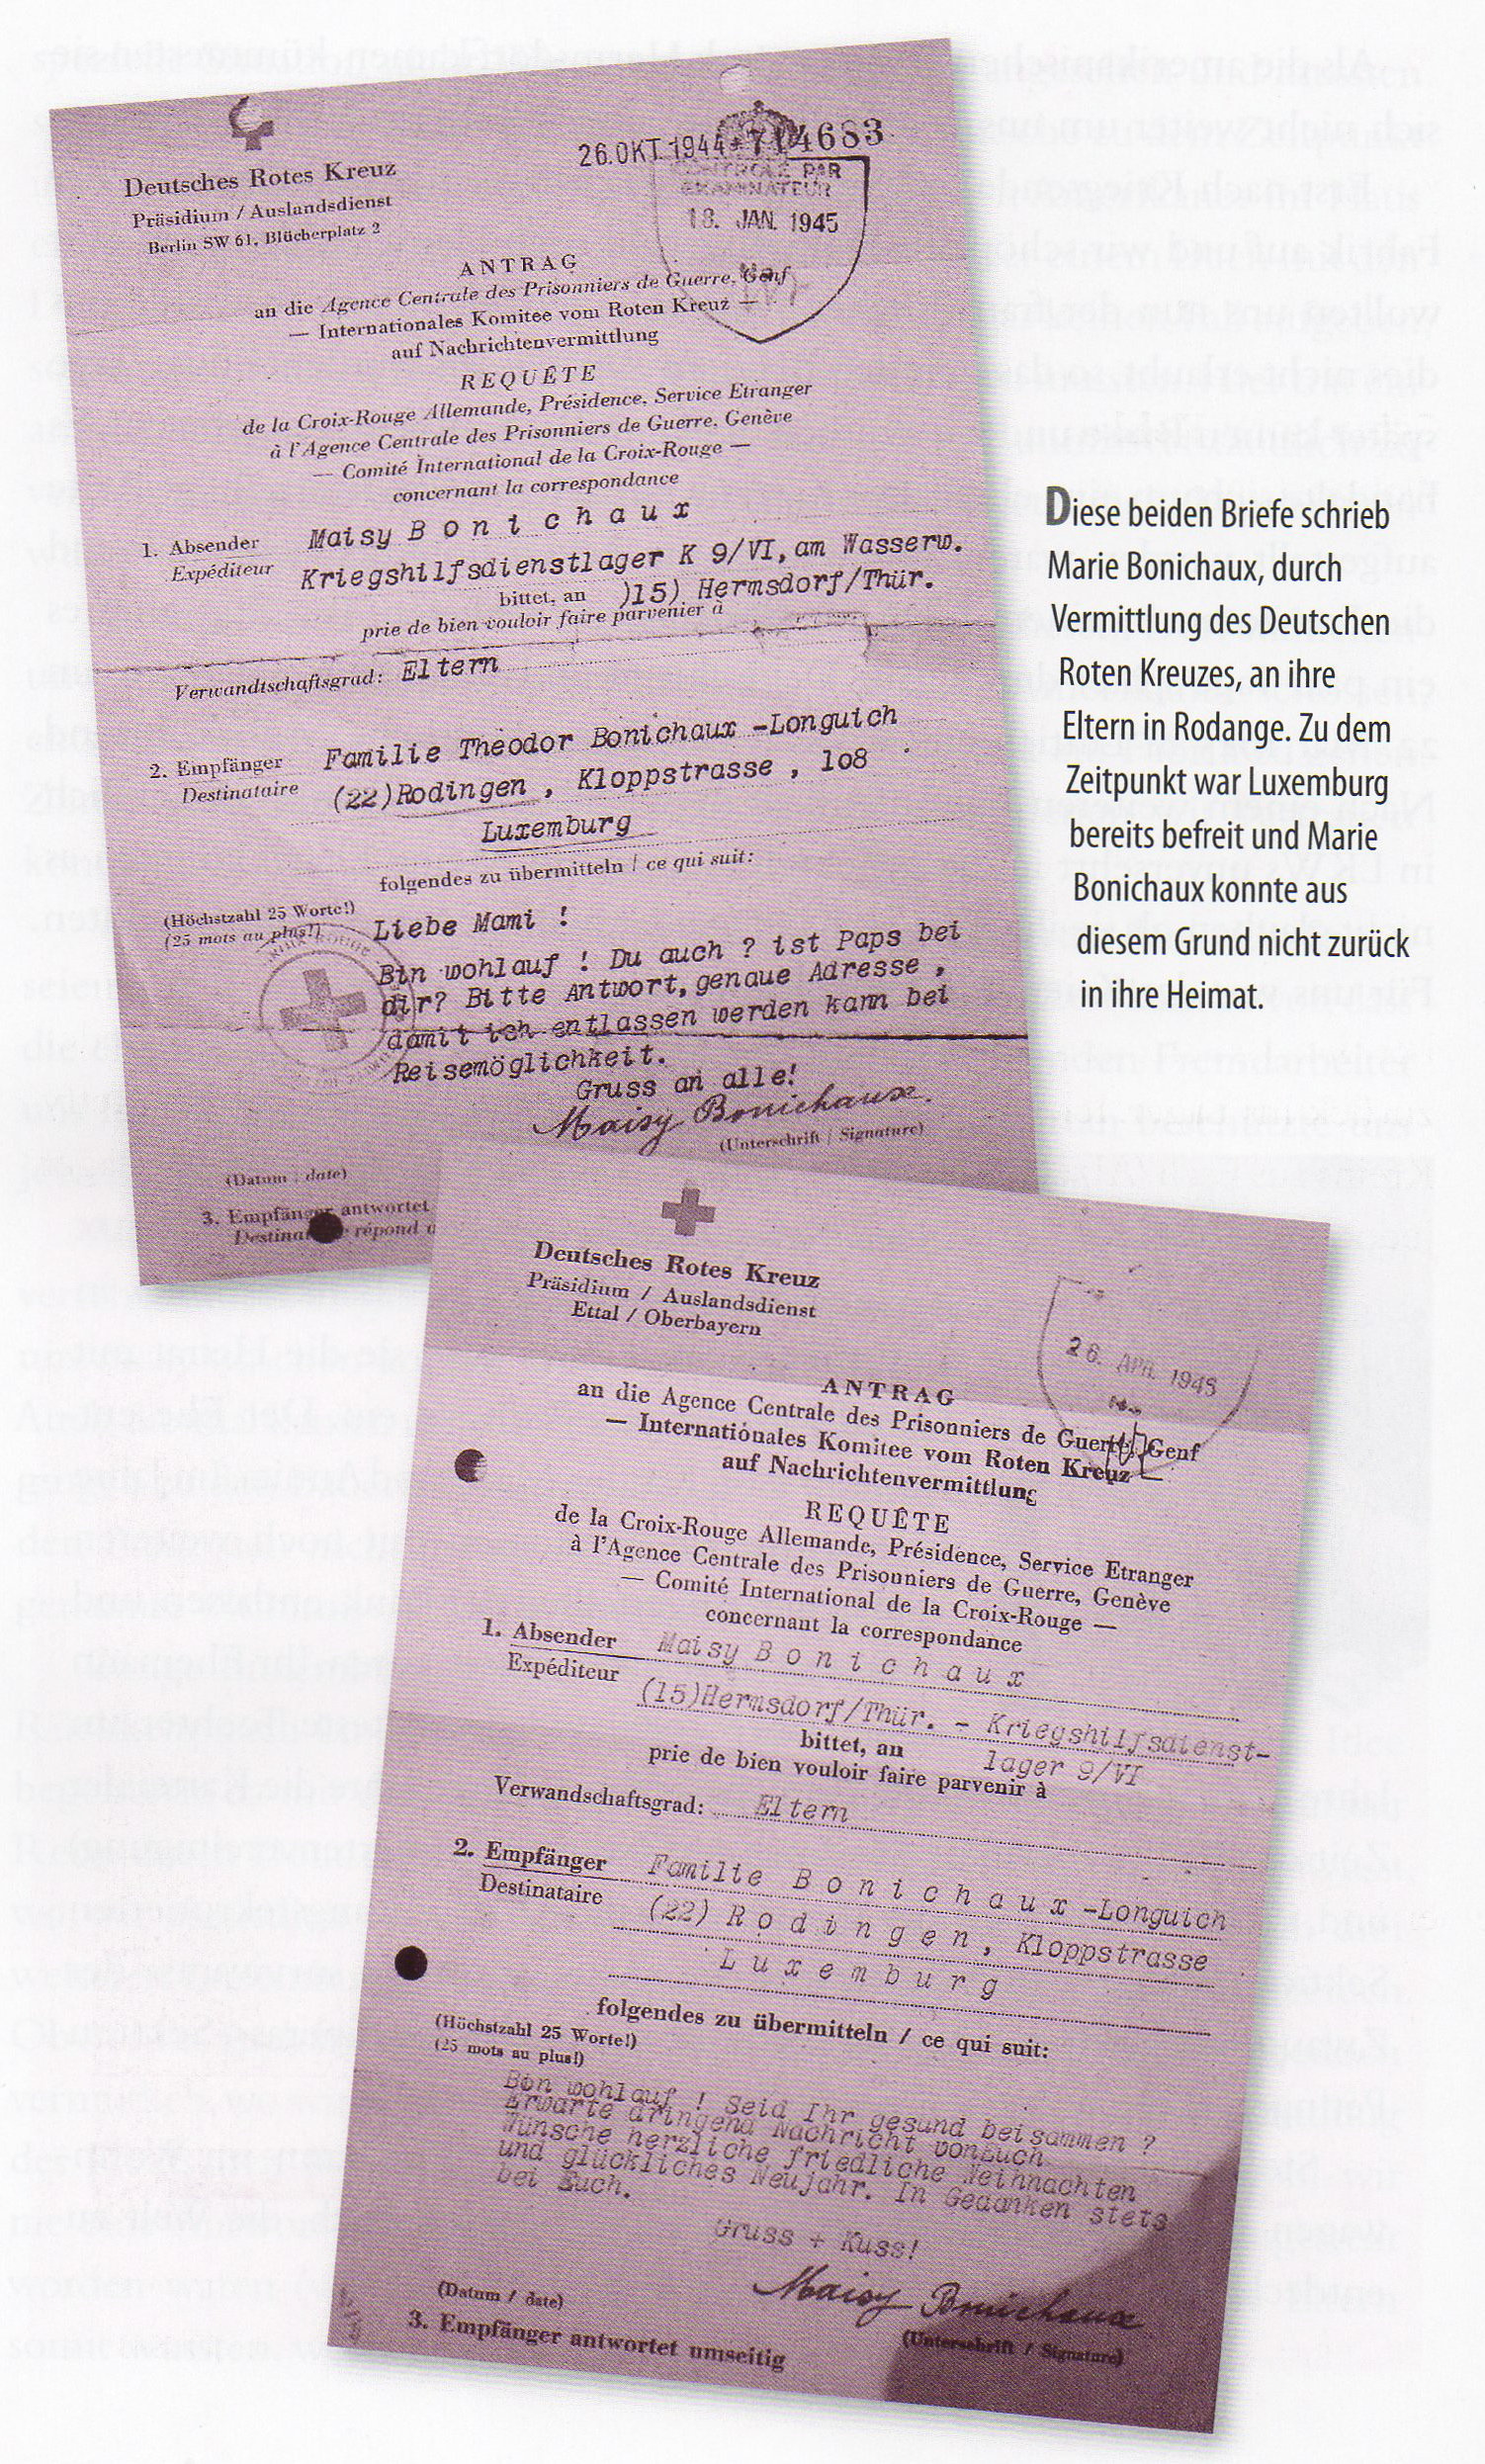 Deutsches Rotes Kreuz
Präsidium / Auslandsdienst
Berlin SW 61, Blücherplatz 2
26.OKT.1944 * 714683
CONTROLE PAR
EXAMINATEUR
18. JAN. 1945
ANTRAG
an die Agence Centrale des Prisonniers de Guerre, Genf
— Internationales Komitee vom Roten Kreuz —
auf Nachrichtenvermittlung
REQUÊTE
de la Croix-Rouge Allemande, Présidence, Service Etranger
à l'Agence Centrale des Prisonniers de Guerre, Genève
— Comité International de la Croix-Rouge —
concernant la correspondance
1. Absender Maisy B o n i c h a u x
Expéditeur Kriegshilfsdienstlager K 9/VI, am Wasserw.
bittet, an )15) Hermsdorf/Thür.
prie de bien vouloir faire parvenir à
Verwandtschaftsgrad: Eltern
2. Empfänger Familie Theodor Bonichaux -Longuich
Destinataire (22)Rodingen , Kloppstrasse , 1o8
Luxemburg
folgendes zu übermitteln / ce qui suit:
(Höchstzahl 25 Worte!)
(25 mots au plus!)
Liebe Mami !
Bin wohlauf ! Du auch ? ist Paps bei
dir? Bitte Antwort, genaue Adresse ,
damit ich entlassen werden kann bei
Reisemöglichkeit.
Gruss an alle!
Maisy Bonichaux.
(Unterschrift / Signature)
(Datum / date)
3. Empfänger antwortet
Destinataire répond
Diese beiden Briefe schrieb
Marie Bonichaux, durch
Vermittlung des Deutschen
Roten Kreuzes, an ihre
Eltern in Rodange. Zu dem
Zeitpunkt war Luxemburg
bereits befreit und Marie
Bonichaux konnte aus
diesem Grund nicht zurück
in ihre Heimat.
Deutsches Rotes Kreuz
Präsidium / Auslandsdienst
Ettal / Oberbayern
26. APR. 1945
ANTRAG
an die Agence Centrale des Prisonniers de Guerre, Genf
— Internationales Komitee vom Roten Kreuz —
auf Nachrichtenvermittlung
REQUÊTE
de la Croix-Rouge Allemande, Présidence, Service Etranger
à l'Agence Centrale des Prisonniers de Guerre, Genève
— Comité International de la Croix-Rouge —
concernant la correspondance
1. Absender Maisy B o n i c h a u x
Expéditeur (15)Hermsdorf/Thür. - Kriegshilfsdienst-
bittet, an lager 9/VI
prie de bien vouloir faire parvenir à
Verwandschaftsgrad: Eltern
2. Empfänger Familie B o n i c h a u x -Longuich
Destinataire (22) R o d i n g e n , Kloppstrasse
L u x e m b u r g
folgendes zu übermitteln / ce qui suit:
(Höchstzahl 25 Worte!)
(25 mots au plus!)
Bin wohlauf ! Seid Ihr gesund beisammen ?
Erwarte dringend Nachricht vonEuch
Wünsche herzliche friedliche Weihnachten
und glückliches Neujahr. In Gedanken stets
bei Euch.
Gruss + Kuss!
Maisy Bonichaux
(Datum / date)
(Unterschrift / Signature)
3. Empfänger antwortet umseitig